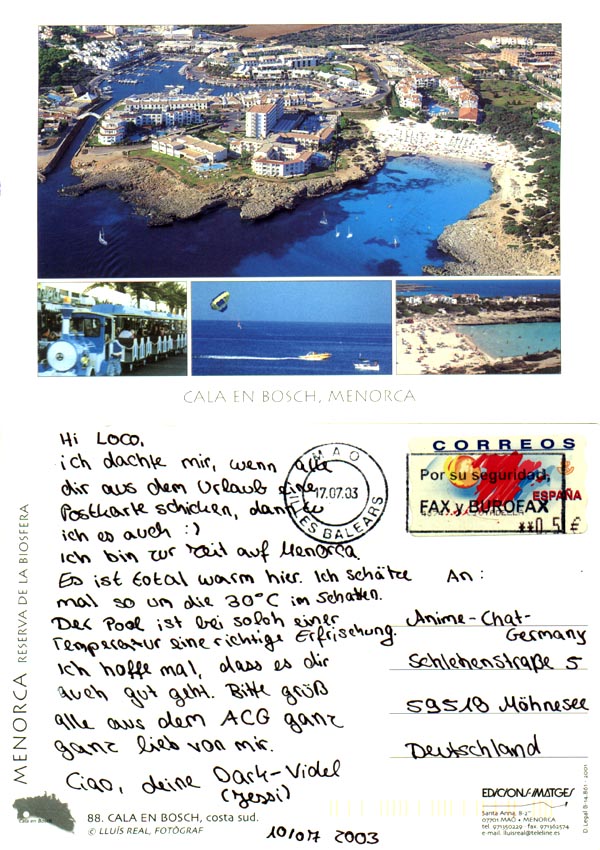 CALA EN BOSCH, MENORCA
Hi LOCO,
ich dachte mir, wenn alle
dir aus dem Urlaub eine
Postkarte schicken, dann tu
ich es auch :)
Ich bin zur Zeit auf Menorca.
Es ist total warm hier. Ich schätze
mal so um die 30°C im Schatten.
Der Pool ist bei solch einer
Temperatur eine richtige Erfrischung.
Ich hoffe mal, dass es dir
auch gut geht. Bitte grüß
alle aus dem ACG ganz
ganz lieb von mir.
Ciao, deine Dark-Videl
(Jessi)
10/07 2003
MAO
17.07.03
ILLES BALEARS
CORREOS
Por su seguridad,
ESPAÑA
FAX y BUROFAX
**0.5 €
An:
Anime-Chat-
Germany
Schlehenstraße 5
59519 Möhnesee
Deutschland
MENORCA RESERVA DE LA BIOSFERA
Cala en Bosch
88. CALA EN BOSCH, costa sud.
© LLUÍS REAL, FOTÒGRAF
EDICIONS-IMATGES
Santa Anna, 8-2º
07701 MAÓ • MENORCA
tel. 971350229 - fax 971362574
e.mail. lluisreal@teleline.es
D. Legal B-14.861 - 2001